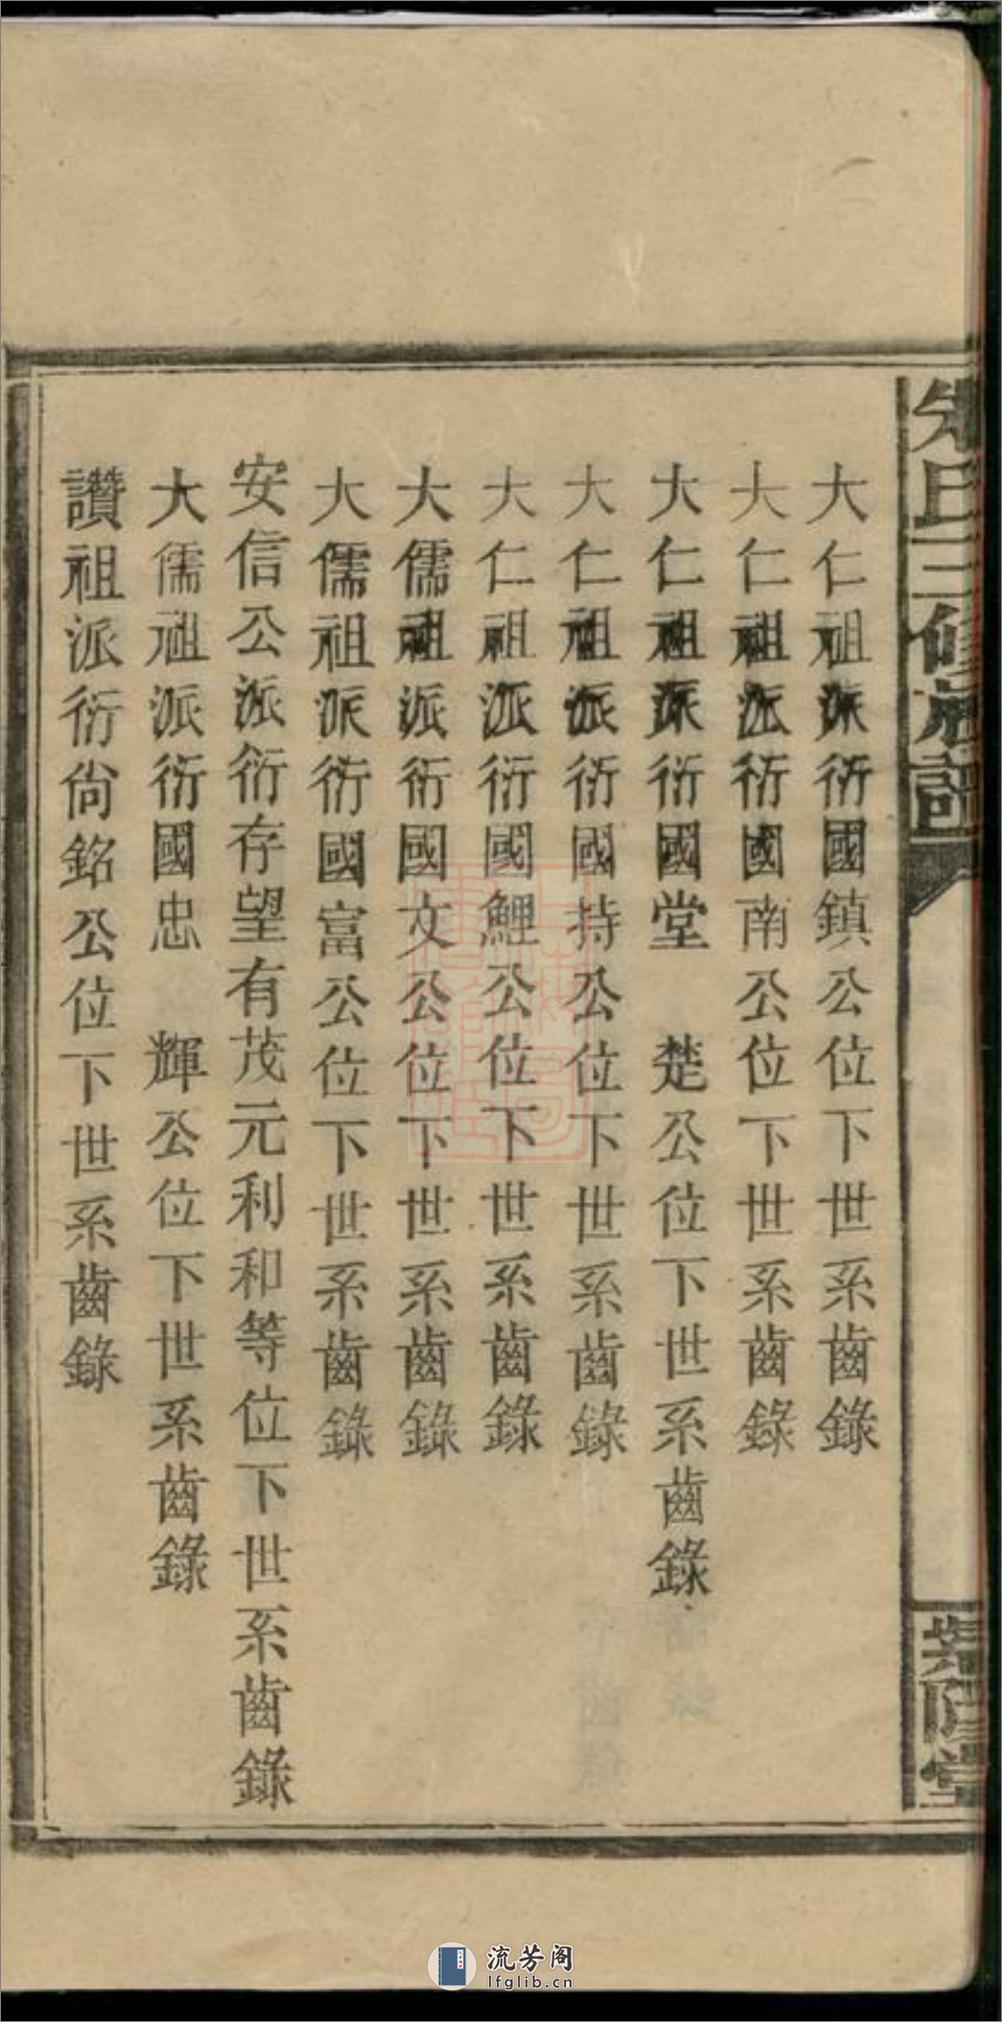 朱氏三修族譜
紫陽堂
大仁祖派衍國鎮公位下世系齒錄
大仁祖派衍國南公位下世系齒錄
大仁祖派衍國堂 楚公位下世系齒錄
大仁祖派衍國持公位下世系齒錄
大仁祖派衍國鯉公位下世系齒錄
大儒祖派衍國文公位下世系齒錄
大儒祖派衍國富公位下世系齒錄
安信公派衍存望有茂元利和等位下世系齒錄
大儒祖派衍國忠 輝公位下世系齒錄
讚祖派衍尙銘公位下世系齒錄
流芳阁
lfglib.cn